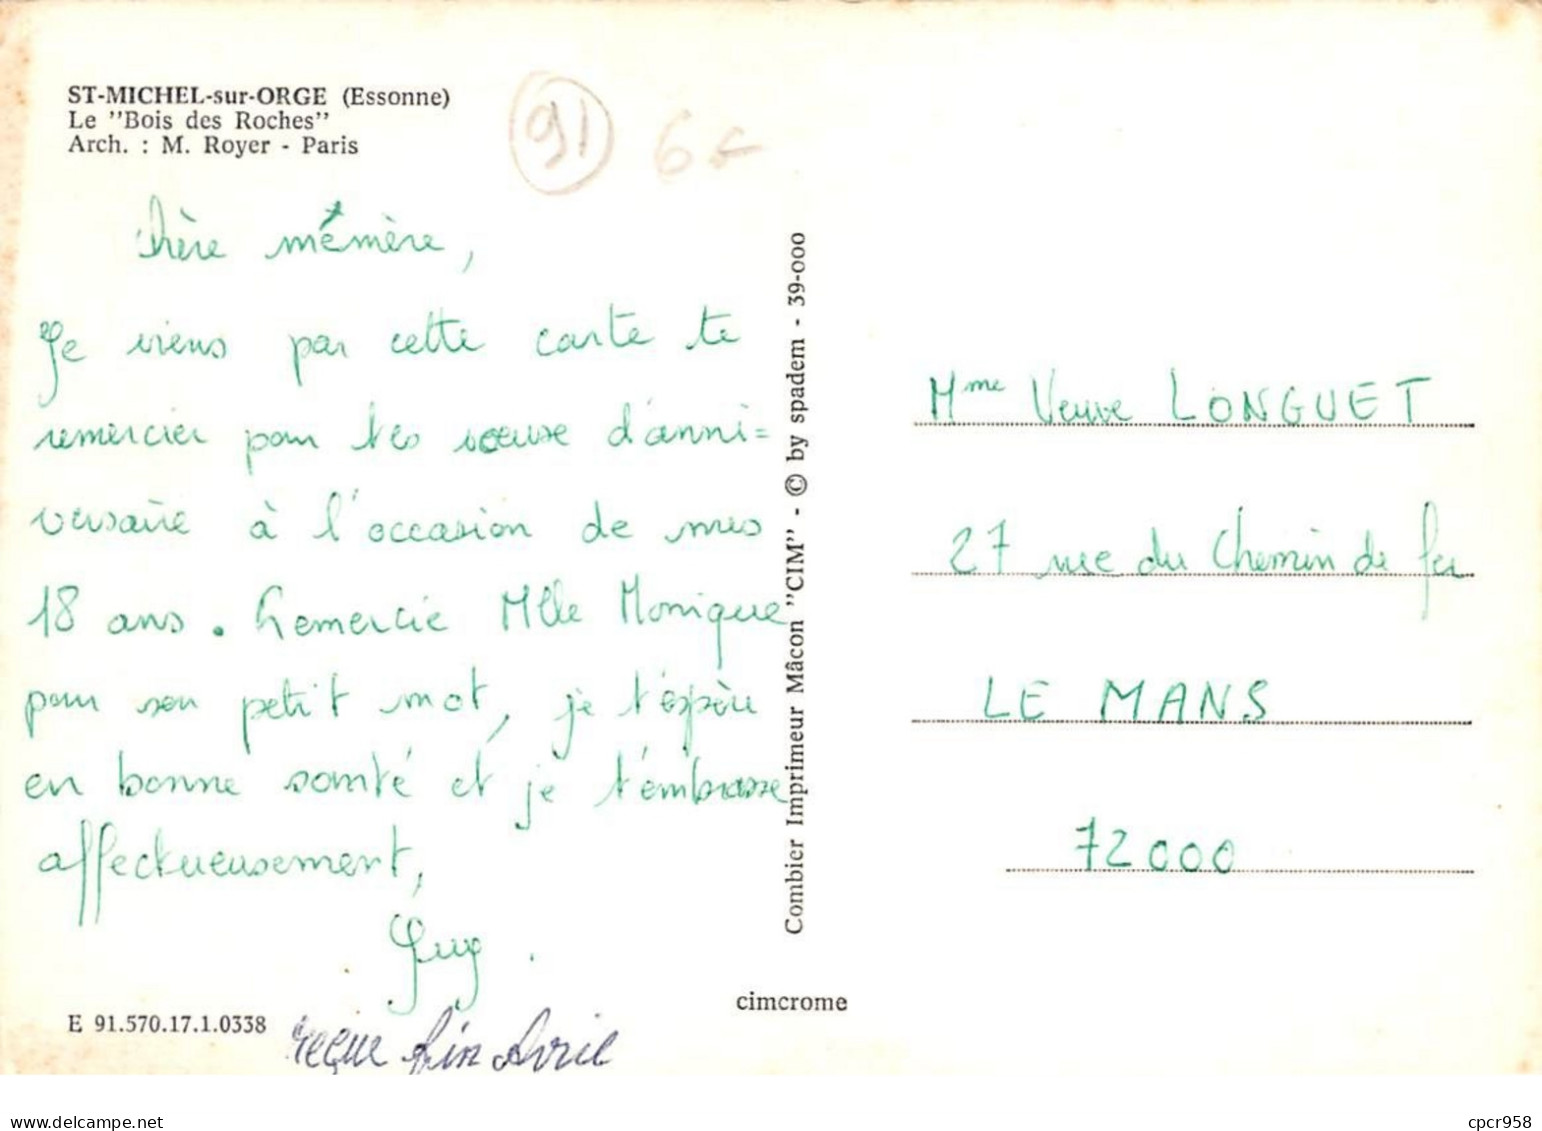 ST-MICHEL-sur-ORGE (Essonne)
Le "Bois des Roches"
Arch. : M. Royer - Paris
91
6F
Chère mémère,
Je viens par cette carte te
remercier pour tes voeux d'anni=
versaire à l'occasion de mes
18 ans. Remercie Mlle Monique
pour son petit mot, je t'espère
en bonne santé et je t'embrasse
affectueusement,
Guy.
E 91.570.17.1.0338
reçue fin Avril
Combier Imprimeur Mâcon "CIM" - © by spadem - 39-000
cimcrome
Mme Veuve LONGUET
27 rue du Chemin de fer
LE MANS
72000
cpcr958